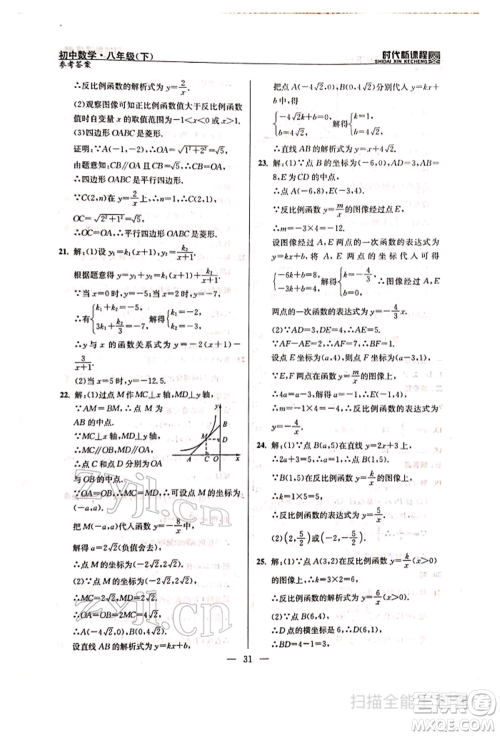 初中数学·八年级(下)
参考答案
时代新课程
SHIDAI XIN KECHENG
∴反比例函数的解析式为 y=2/x.
(2)观察图像可知正比例函数值大于反比例函数值时自变量 x 的取值范围为
(3)四边形 OABC 是菱形.
证明:∵A(-1,-2),∴OA=√(1²+2²)=√5.
由题意知:CB∥OA 且 CB=√5,∴CB=OA.
∴四边形 OABC 是平行四边形.
∵C(2,n)在 y=2/x 上,∴n=1,∴C(2,1),
OC=√(2²+1²)=√5.
∴OC=OA.∴四边形 OABC 是菱形.
21. 解:(1)设 y₁=k₁(x+1),y₂=k₂/(x+1).
根据题意得 y=k₁(x+1)+k₂/(x+1).
∵当 x=0 时,y=1;当 x=2 时,y=-5,
∴有{k₁+k₂=1, 3k₁+k₂/3=-5.解得{k₁=-2, k₂=3.
∴y 与 x 的函数关系式为 y=-2(x+1)+
3/(x+1).
(2)当 x=5 时,y=-12.5.
22. 解:(1)作 MC⊥x 轴,MD⊥y 轴.
∵AM=BM,∴点 M 为
AB 的中点.
∵MC⊥x 轴,MD⊥y 轴,
∴MC∥OB,MD∥OA.
∴点 C 和点 D 分别为 OA
与 OB 的中点.∴MC=MD.
∵OA=OB,∴点 M 的坐标可以表示为
(-a,a).
把 M(-a,a)代入函数 y=-8/x 中,
解得 a=2√2(负值舍去).
∴点 M 的坐标为(-2√2,2√2).
(2)∵点 M 的坐标为(-2√2,2√2),
∴MC=2√2,MD=2√2.
∴OA=OB=2MC=4√2.
∴A(-4√2,0),B(0,4√2).
设直线 AB 的解析式为 y=kx+b.
把点 A(-4√2,0)和 B(0,4√2)分别代入 y=kx+b
中得{-4√2k+b=0, b=4√2,解得{k=1, b=4√2.
23. 解:(1)∵点 B 的坐标为(-6,0),AD=3,
AB=8,E 为 CD 的中点,
∴A(-6,8),E(-3,4).
∵反比例函数 y=m/x 的图像经过点 E,
∴m=-3×4=-12.
设图像经过 A,E 两点的一次函数的表达式为
y=kx+b.将 A,E 两点的坐标代入得
{-6k+b=8, -3k+b=4,解得{k=-4/3, b=0.
∴图像经过 A,E
两点的一次函数的表达式为 y=-4/3x.
(2)∵AD=3,DE=4,∴AE=5.
∵AF-AE=2,∴AF=7.∴BF=1.
设点 E 的坐标为(a,4),则点 F 的坐标为(a-3,1).
∵E,F 两点在函数 y=m/x 的图像上,
∴4a=a-3,解得 a=-1.∴E(-1,4).
∴m=-1×4=-4.∴y=-4/x.
24. 解:(1)∵点 B(a,5)在直线 y=2x+3 上,
∴2a+3=5,∴a=1,∴点 B(1,5).
∵反比例函数 y=k/x 的图像经过点 B(1,5),
∴k=1×5=5.
∴反比例函数的表达式为 y=5/x.
25. 解:(1)∵点 A(3,4)在反比例函数 y=k/x(x>0)
的图像上,∴k=3×4=12.
∴反比例函数的解析式为 y=12/x(x>0).
(2)∵点 B(6,4),
∴点 D 的横坐标为 6.
31
扫描全能王